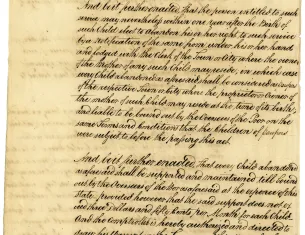 And be it further enacted, That the person entitled to such
service may nevertheless within one year after the Birth of
such Child elect to abandon his or her right to such service
by a notification of the same from under his or her hand
and lodged with the Clerk of the Town or City where the owner
of the Mother of any such Child may reside, in which case
every Child abandoned as aforesaid shall be considered as
of the respective Town or City where the proprietor or owner of
the mother of such Child may reside at the time of its birth
and liable to be bound out by the Overseers of the Poor on the
same Terms and Conditions that the Children of Paupers
were subject to before the passing this act.
And be it further enacted, That every Child abandoned
as aforesaid shall be supported and maintained till bound
out by the Overseers of the Poor as aforesaid at the expence of this
State, provided however that the said support does not
exceed three Dollars and fifty Cents per Month for each Child.
And the Comptroller is hereby authorized and directed to